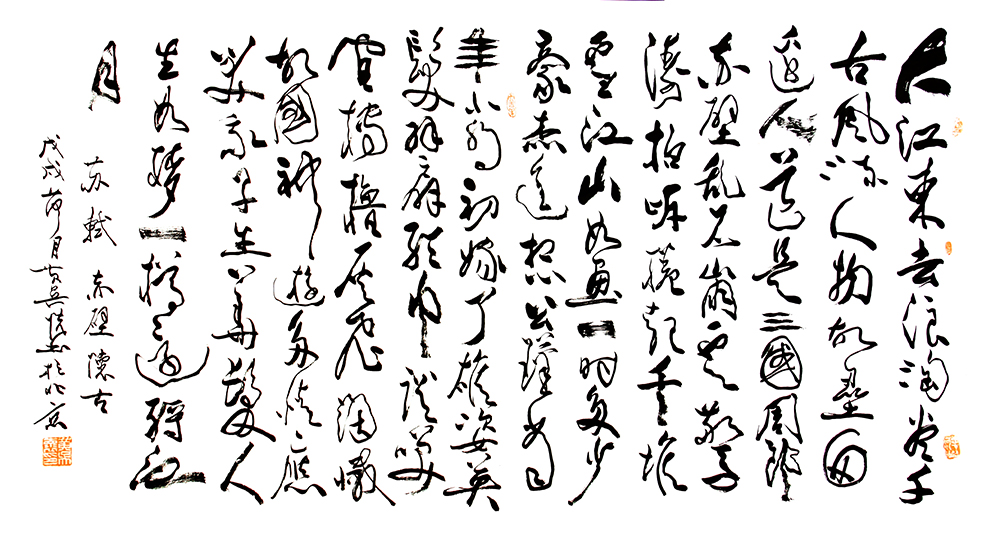 大江東去浪淘盡千
古風流人物故壘西
邊人道是三國周郎
赤壁亂石崩雲驚
濤拍岸捲起千堆
雪江山如畫一時多少
豪杰遥想公瑾當
年小喬初嫁了雄姿英
發羽扇綸巾談笑
間檣櫓灰飛煙滅
故國神遊多情應
笑我早生華髮人
生如夢一樽還酹江
月
苏軾 赤壁懷古
戊戌荷月 書於北京